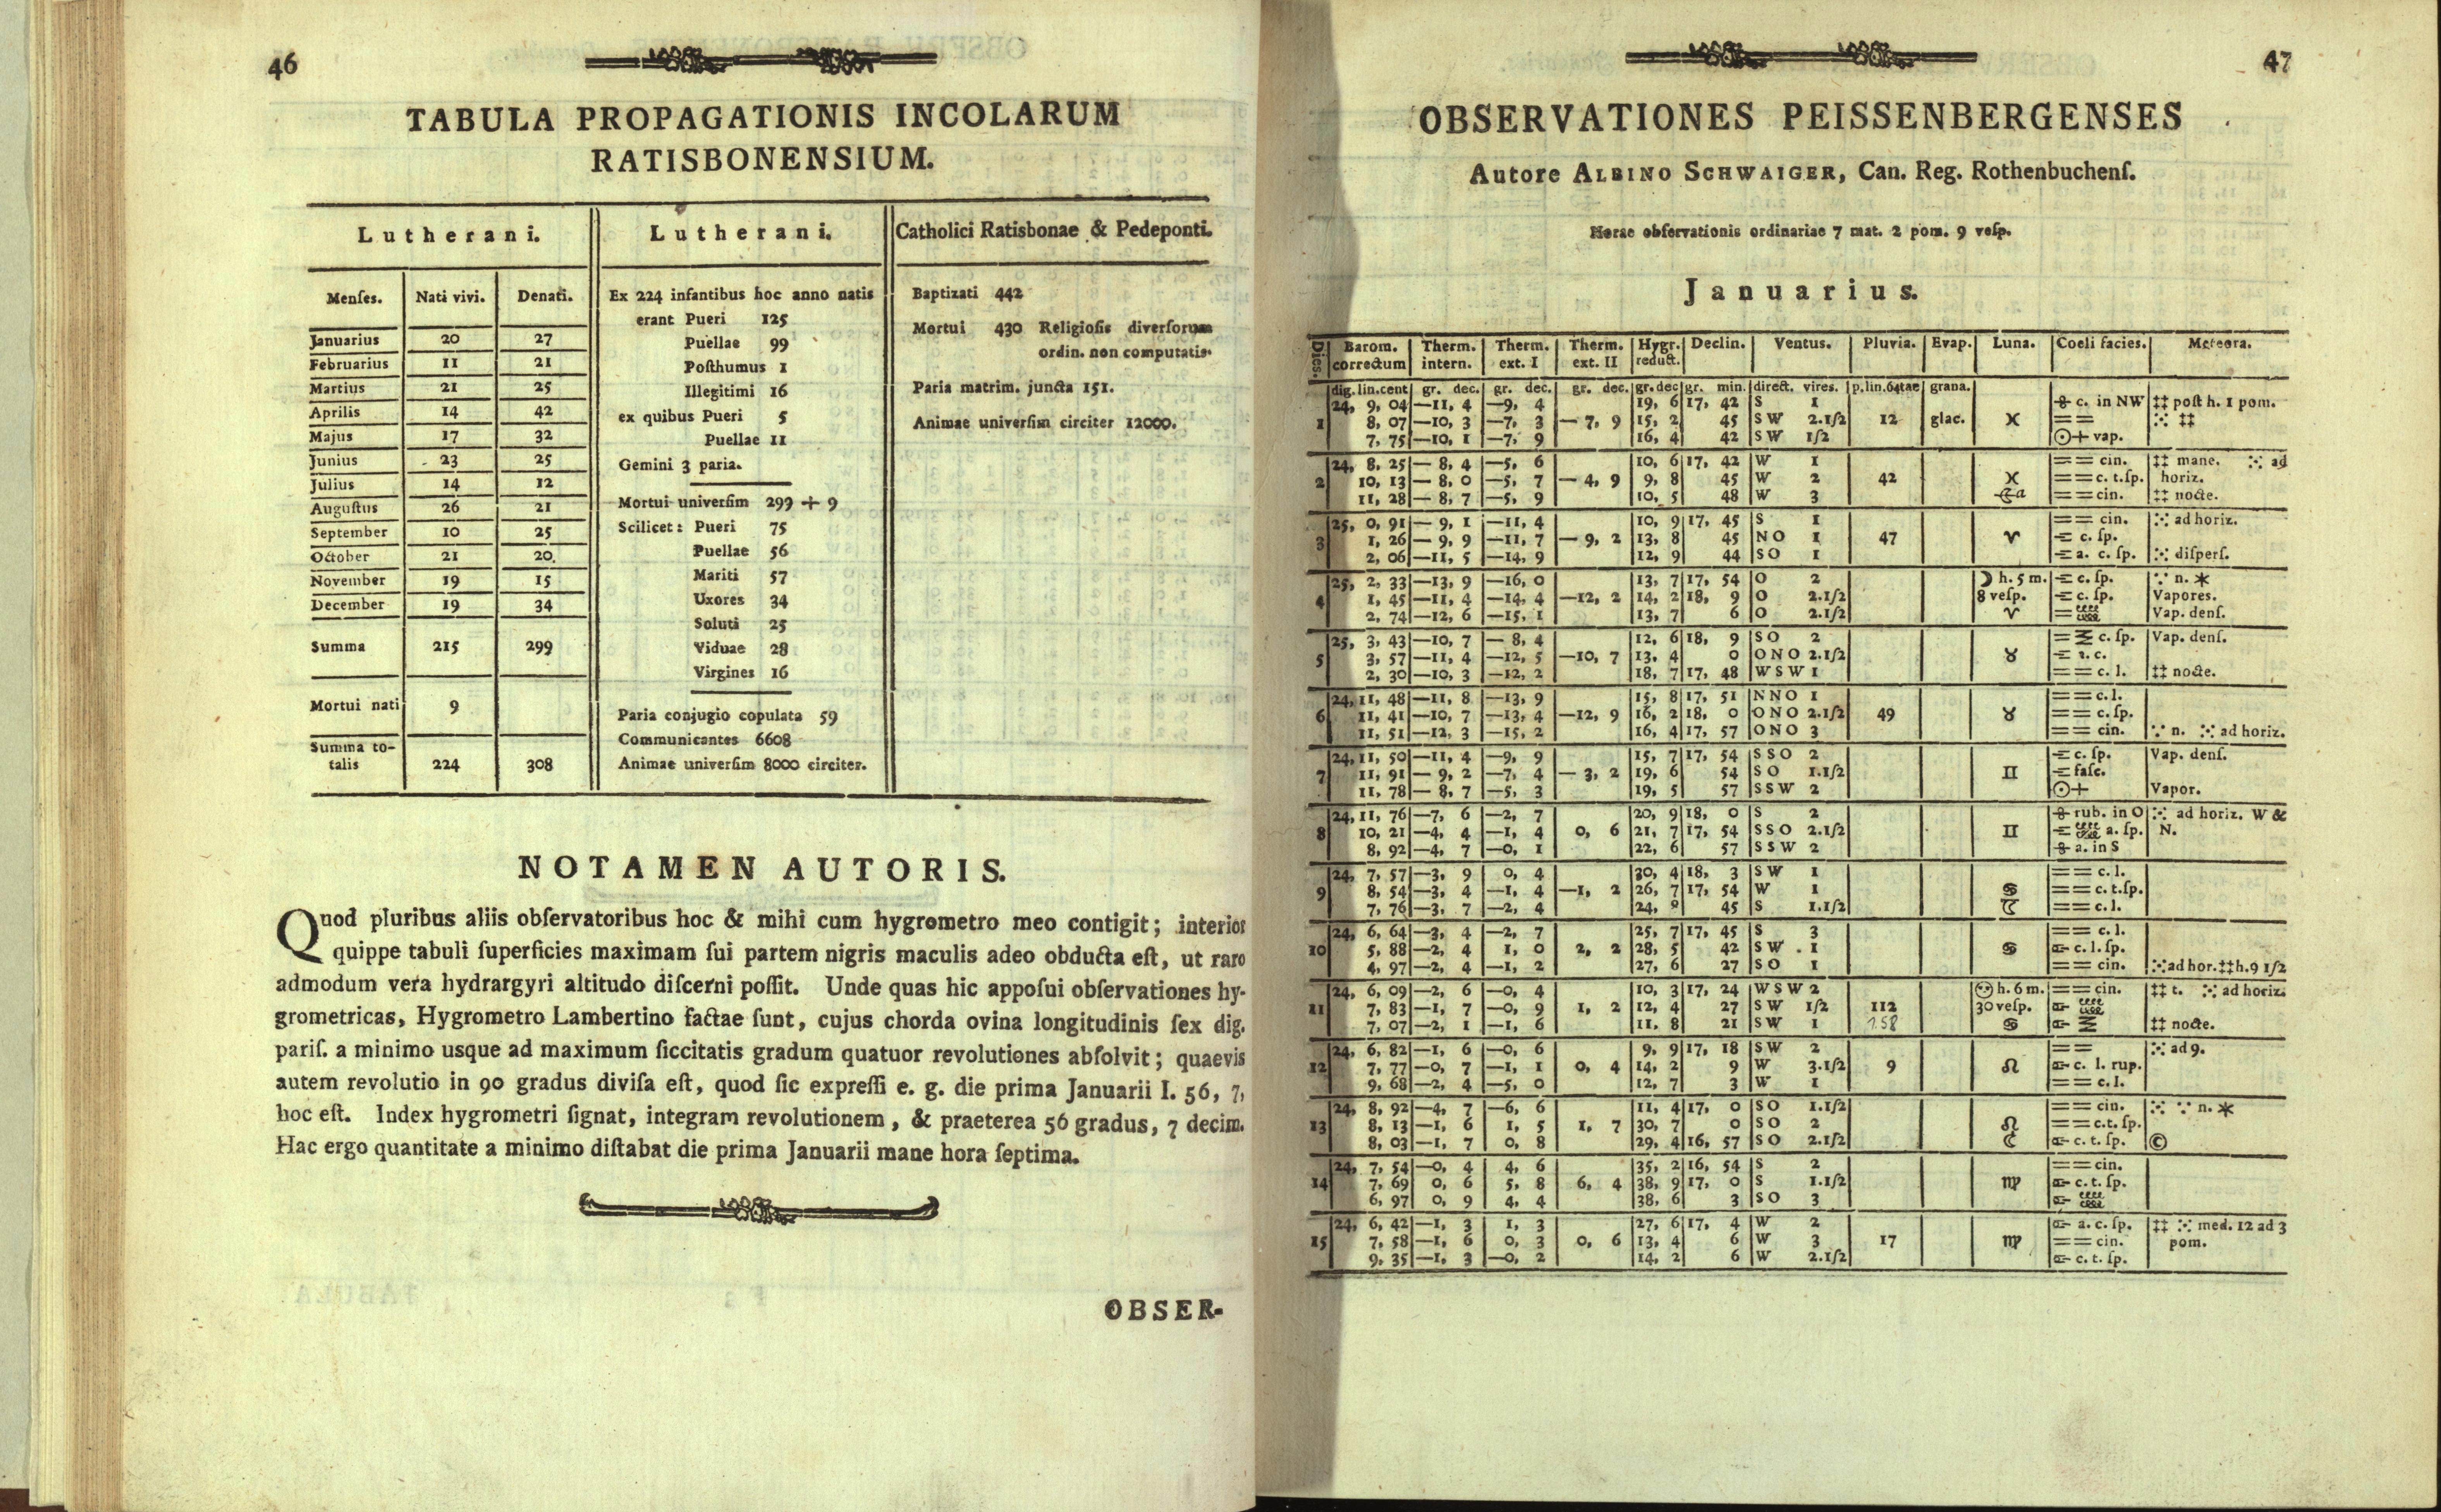 46
TABULA PROPAGATIONIS INCOLARUM
RATISBONENSIUM.
Lutherani.
Menſes. Nati vivi. Denati.
Januarius 20 27
Februarius 11 21
Martius 21 25
Aprilis 14 42
Majus 17 32
Junius 23 25
Julius 14 12
Auguſtus 26 21
September 10 25
October 21 20.
November 19 15
December 19 34
Summa 215 299
Mortui nati 9
Summa to-
talis 224 308
Lutherani.
Ex 224 infantibus hoc anno natis
erant Pueri 125
Puellae 99
Poſthumus 1
Illegitimi 16
ex quibus Pueri 5
Puellae 11
Gemini 3 paria.
Mortui univerſim 299 + 9
Scilicet: Pueri 75
Puellae 56
Mariti 57
Uxores 34
Soluti 25
Viduae 28
Virgines 16
Paria conjugio copulata 59
Communicantes 6608
Animae univerſim 8000 circiter.
Catholici Ratisbonae & Pedeponti.
Baptizati 442
Mortui 430 Religioſis diverſorum
ordin. non computatis.
Paria matrim. juncta 151.
Animae univerſim circiter 12000.
NOTAMEN AUTORIS.
Quod pluribus aliis obſervatoribus hoc & mihi cum hygrometro meo contigit; interior
quippe tabuli ſuperficies maximam ſui partem nigris maculis adeo obducta eſt, ut raro
admodum vera hydrargyri altitudo diſcerni poſſit. Unde quas hic appoſui obſervationes hy-
grometricas, Hygrometro Lambertino factae ſunt, cujus chorda ovina longitudinis ſex dig.
pariſ. a minimo usque ad maximum ſiccitatis gradum quatuor revolutiones abſolvit; quaevis
autem revolutio in 90 gradus diviſa eſt, quod ſic expreſſi e. g. die prima Januarii I. 56, 7,
hoc eſt. Index hygrometri ſignat, integram revolutionem, & praeterea 56 gradus, 7 decim.
Hac ergo quantitate a minimo diſtabat die prima Januarii mane hora ſeptima.
OBSER-
47
OBSERVATIONES PEISSENBERGENSES
Autore ALBINO SCHWAIGER, Can. Reg. Rothenbuchenſ.
Horae obſervationis ordinariae 7 mat. 2 pom. 9 veſp.
Januarius.
Dies. Barom. correctum Therm. intern. Therm. ext. I Therm. ext. II Hygr. reduct. Declin. Ventus. Pluvia. Evap. Luna. Coeli facies. Meteora.
dig. lin. cent gr. dec. gr. dec. gr. dec. gr. dec gr. min. direct. vires. p. lin. 64tae grana.
24, 9, 04 —11, 4 —9, 4 19, 6 17, 42 S 1 c. in NW ‡‡ poſt h. 1 pom.
1 8, 07 —10, 3 —7, 3 — 7, 9 15, 2 45 S W 2.1/2 12 glac. ♓ == ⁙ ‡‡
7, 75 —10, 1 —7, 9 16, 4 42 S W 1/2 ☉+ vap.
24, 8, 25 — 8, 4 —5, 6 10, 6 17, 42 W 1 == cin. ‡‡ mane. ⁙ ad
2 10, 13 — 8, 0 —5, 7 — 4, 9 9, 8 45 W 2 42 ♓ == c. t. ſp. horiz.
11, 28 — 8, 7 —5, 9 10, 5 48 W 3 == cin. ‡‡ nocte.
25, 0, 91 — 9, 1 —11, 4 10, 9 17, 45 S 1 == cin. ⁙ ad horiz.
3 1, 26 — 9, 9 —11, 7 — 9, 2 13, 8 45 N O 1 47 ♈ c. ſp.
2, 06 —11, 5 —14, 9 12, 9 44 S O 1 a. c. ſp. ⁙ diſperſ.
25, 2, 33 —13, 9 —16, 0 13, 7 17, 54 O 2 ☽ h. 5 m. c. ſp. ∵ n. *
4 1, 45 —11, 4 —14, 4 —12, 2 14, 2 18, 9 O 2.1/2 8 veſp. c. ſp. Vapores.
2, 74 —12, 6 —15, 1 13, 7 6 O 2.1/2 ♈ Vap. denſ.
25, 3, 43 —10, 7 — 8, 4 12, 6 18, 9 S O 2 c. ſp. Vap. denſ.
5 3, 57 —11, 4 —12, 5 —10, 7 13, 4 0 O N O 2.1/2 ♉ c.
2, 30 —10, 3 —12, 2 18, 7 17, 48 W S W 1 == c. l. ‡‡ nocte.
24, 11, 48 —11, 8 —13, 9 15, 8 17, 51 N N O 1 == c. l.
6 11, 41 —10, 7 —13, 4 —12, 9 16, 2 18, 0 O N O 2.1/2 49 ♉ == c. ſp.
11, 51 —12, 3 —15, 2 16, 4 17, 57 O N O 3 == cin. ∵ n. ⁙ ad horiz.
24, 11, 50 —11, 4 —9, 9 15, 7 17, 54 S S O 2 c. ſp. Vap. denſ.
7 11, 91 — 9, 2 —7, 4 — 3, 2 19, 6 54 S O 1.1/2 ♊ faſc.
11, 78 — 8, 7 —5, 3 19, 5 57 S S W 2 ☉+ Vapor.
24, 11, 76 —7, 6 —2, 7 20, 9 18, 0 S 2 rub. in O ⁙ ad horiz. W &
8 10, 21 —4, 4 —1, 4 0, 6 21, 7 17, 54 S S O 2.1/2 ♊ a. ſp. N.
8, 92 —4, 7 —0, 1 22, 6 57 S S W 2 a. in S
24, 7, 57 —3, 9 0, 4 30, 4 18, 3 S W 1 == c. l.
9 8, 54 —3, 4 —1, 4 —1, 2 26, 7 17, 54 W 1 ♋ == c. t. ſp.
7, 76 —3, 7 —2, 4 24, 45 S 1.1/2 ☾ == c. l.
24, 6, 64 —3, 4 —2, 7 25, 7 17, 45 S 3 == c. l.
10 5, 88 —2, 4 1, 0 2, 2 28, 5 42 S W 1 ♋ c. l. ſp.
4, 97 —2, 4 —1, 2 27, 6 27 S O 1 == cin. ⁙ ad hor. ‡‡ h. 9 1/2
24, 6, 09 —2, 6 —0, 4 10, 3 17, 24 W S W 2 h. 6 m. == cin. ‡‡ t. ⁙ ad horiz.
11 7, 83 —1, 7 —0, 9 1, 2 12, 4 27 S W 1/2 112 30 veſp.
7, 07 —2, 1 —1, 6 11, 8 21 S W 1 158 ♋ ‡‡ nocte.
24, 6, 82 —1, 6 —0, 6 9, 9 17, 18 S W 2 == ⁙ ad 9.
12 7, 77 —0, 7 —1, 1 0, 4 14, 2 9 W 3.1/2 9 ♌ c. l. rup.
9, 68 —2, 4 —5, 0 12, 7 3 W 1 == c. l.
24, 8, 92 —4, 7 —6, 6 11, 4 17, 0 S O 1.1/2 == cin. ⁙ ∵ n. *
13 8, 13 —1, 6 1, 5 1, 7 30, 7 0 S O 2 ♌ == c. t. ſp.
8, 03 —1, 7 0, 8 29, 4 16, 57 S O 2.1/2 ☾ c. t. ſp. ©
24, 7, 54 —0, 4 4, 6 35, 2 16, 54 S 2 == cin.
14 7, 69 0, 6 5, 8 6, 4 38, 9 17, 0 S 1.1/2 ♍ c. t. ſp.
6, 97 0, 9 4, 4 38, 6 3 S O 3
24, 6, 42 —1, 3 1, 3 27, 6 17, 4 W 2 a. c. ſp. ‡‡ ⁙ med. 12 ad 3
15 7, 58 —1, 6 0, 3 0, 6 13, 4 6 W 3 17 ♍ == cin. pom.
9, 35 —1, 3 —0, 2 14, 2 6 W 2.1/2 c. t. ſp.